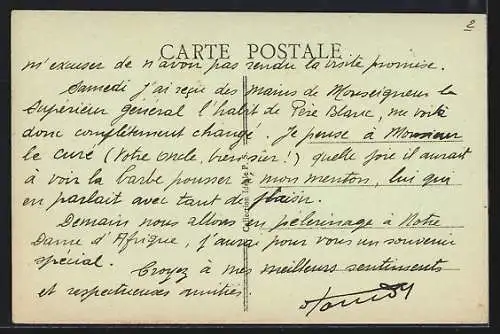 2
CARTE POSTALE
m'excuser de n'avoir pas rendu la visite promise.
Samedi j'ai reçu des mains de Monseigneur le
Supérieur général l'habit de Père Blanc, me voilà
donc complètement changé. Je pense à Monsieur
le curé (Votre oncle, ) quelle joie il aurait
à voir la barbe pousser à mon menton, lui qui
en parlait avec tant de plaisir.
Demain nous allons en pèlerinage à Notre
Dame d'Afrique, j'aurai pour vous un souvenir
spécial. Croyez à mes meilleurs sentiments
et respectueuses amitiés.
Collection Idéale P.S.